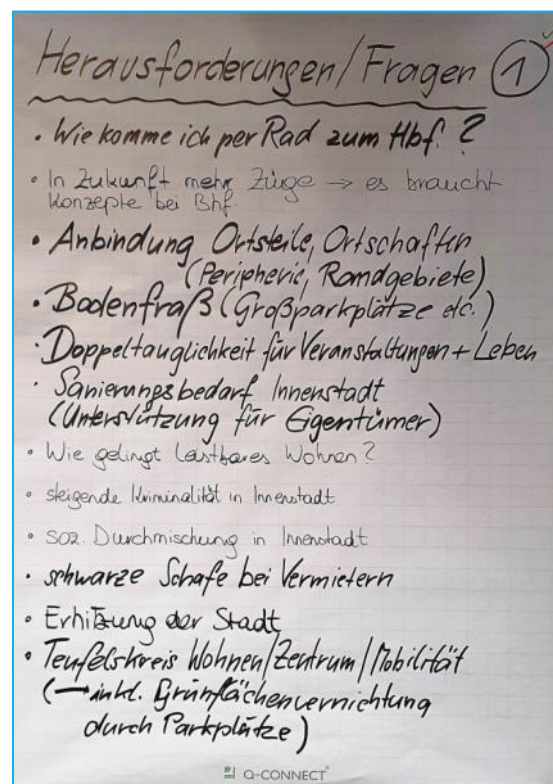 Herausforderungen/Fragen 1
• Wie komme ich per Rad zum Hbf.?
• In Zukunft mehr Züge → es braucht
Konzepte bei Bhf.
• Anbindung Ortsteile, Ortschaften
(Peripherie, Randgebiete)
• Bodenfraß (Großparkplätze etc.)
• Doppeltauglichkeit für Veranstaltungen + Leben
• Sanierungsbedarf Innenstadt
(Unterstützung für Eigentümer)
• Wie gelingt leistbares Wohnen?
• steigende Kriminalität in Innenstadt
• soz. Durchmischung in Innenstadt
• schwarze Schafe bei Vermietern
• Erhitzung der Stadt
• Teufelskreis Wohnen/Zentrum/Mobilität
(→ inkl. Grünflächenvernichtung
durch Parkplätze)
Q-CONNECT